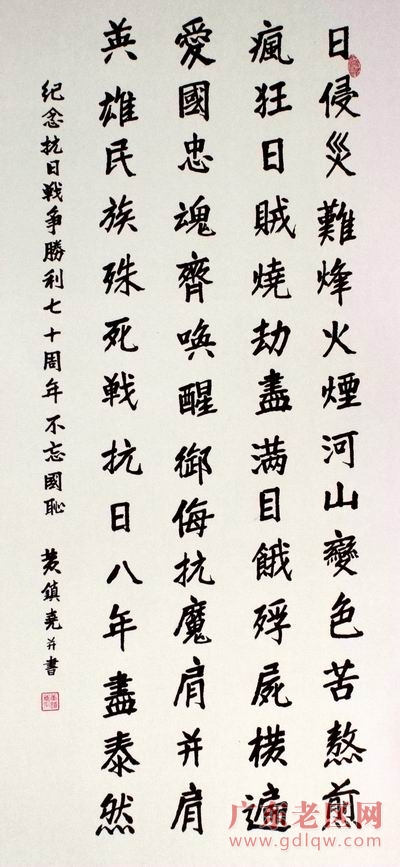 日侵災難烽火煙河山變色苦熬煎
瘋狂日賊燒劫盡滿目餓殍屍横遍
愛國忠魂齊喚醒御侮抗魔肩并肩
英雄民族殊死戰抗日八年盡泰然
紀念抗日戰爭勝利七十周年不忘國恥 黄鎮堯并書
广东老区网
www.gdlqw.com